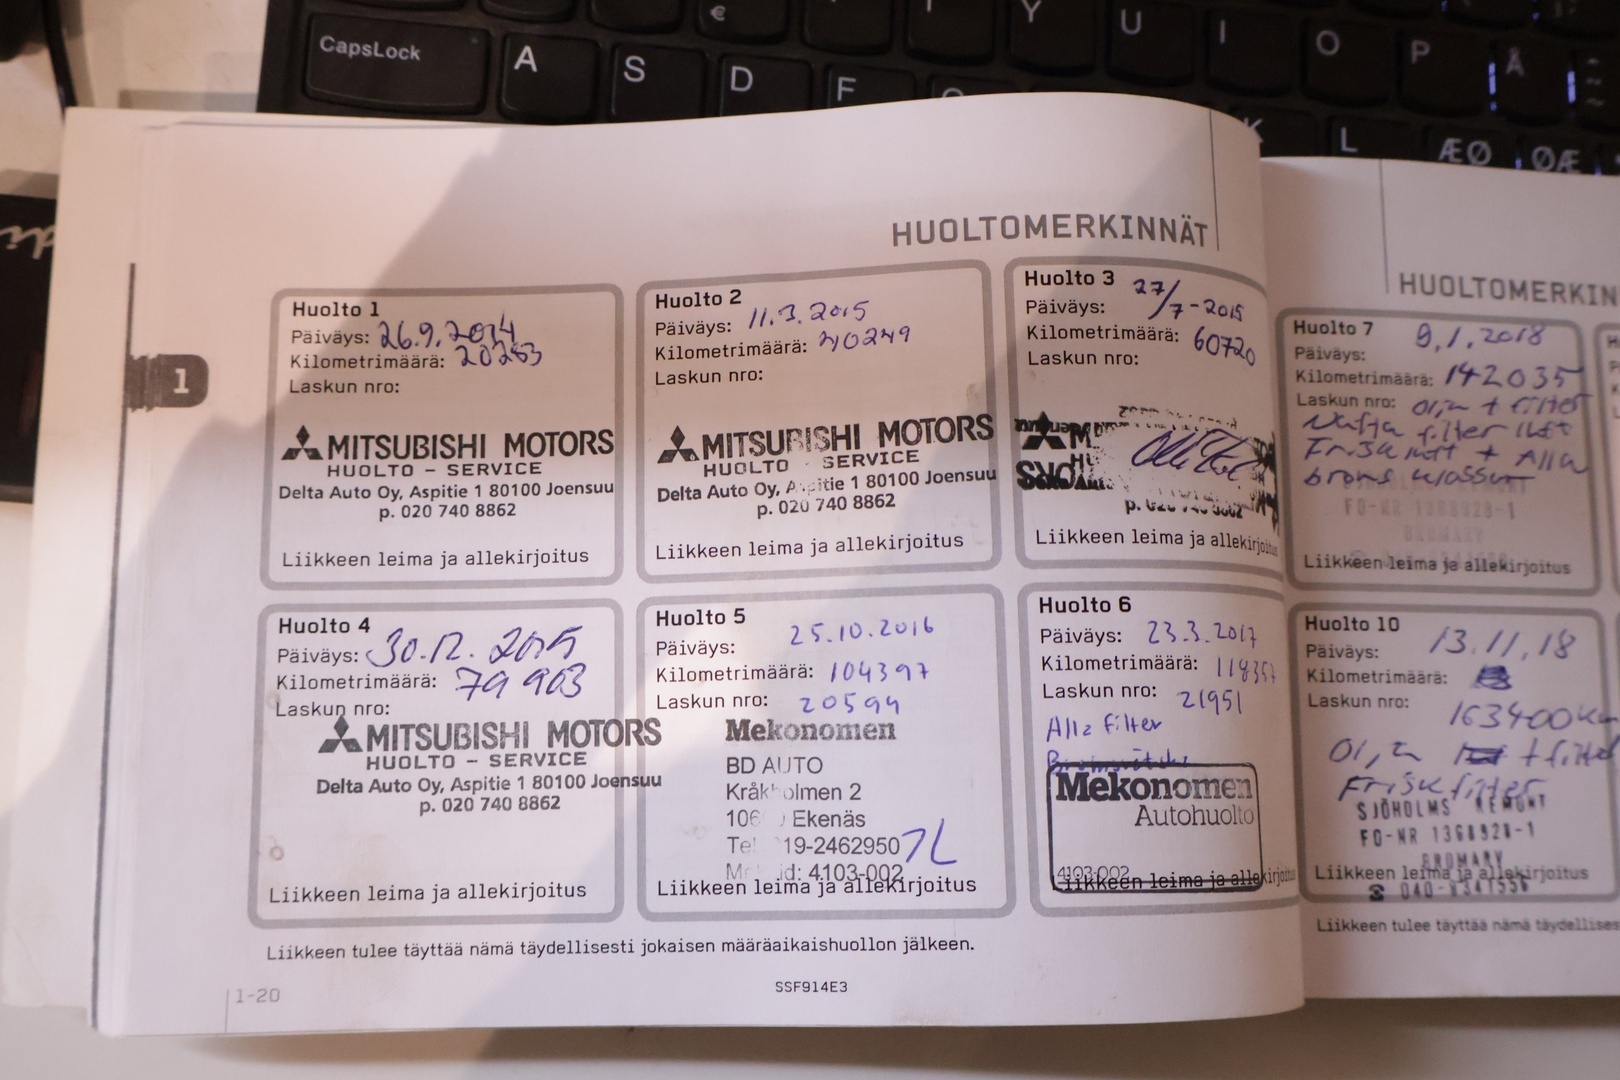 CapsLock
A S D F
€ Y U I O P Å
K L ÆØ ØÆ
HUOLTOMERKINNÄT
1
Huolto 1
Päiväys: 26.9.2014
Kilometrimäärä: 20283
Laskun nro:
MITSUBISHI MOTORS
HUOLTO - SERVICE
Delta Auto Oy, Aspitie 1 80100 Joensuu
p. 020 740 8862
Liikkeen leima ja allekirjoitus
Huolto 2
Päiväys: 11.3.2015
Kilometrimäärä: 40249
Laskun nro:
MITSUBISHI MOTORS
HUOLTO - SERVICE
Delta Auto Oy, Aspitie 1 80100 Joensuu
p. 020 740 8862
Liikkeen leima ja allekirjoitus
Huolto 3
Päiväys: 27/7-2015
Kilometrimäärä: 60720
Laskun nro:
Liikkeen leima ja allekirjoitus
Huolto 4
Päiväys: 30.12.2015
Kilometrimäärä: 79903
Laskun nro:
MITSUBISHI MOTORS
HUOLTO - SERVICE
Delta Auto Oy, Aspitie 1 80100 Joensuu
p. 020 740 8862
Liikkeen leima ja allekirjoitus
Huolto 5
Päiväys: 25.10.2016
Kilometrimäärä: 104397
Laskun nro: 20594
Mekonomen
BD AUTO
Kråkholmen 2
Ekenäs
19-2462950
4103-002
Liikkeen leima ja allekirjoitus
Huolto 6
Päiväys: 23.3.2017
Kilometrimäärä: 118357
Laskun nro: 21951
Alla filter
Mekonomen
Autohuolto
4103-002
Liikkeen leima ja allekirjoitus
Liikkeen tulee täyttää nämä täydellisesti jokaisen määräaikaishuollon jälkeen.
1-20
SSF914E3
HUOLTOMERKIN
Huolto 7
Päiväys: 9.1.2018
Kilometrimäärä: 142035
Laskun nro: olja + filter
filter luft
Frisk luft + Alla
broms klossar
FO-NR 1368928-1
BROMARV
Liikkeen leima ja allekirjoitus
Huolto 10
Päiväys: 13.11.18
Kilometrimäärä:
Laskun nro:
163400 km
Olja + filter
Frisk filter
SJÖHOLMS REMONT
FO-NR 1368928-1
BROMARV
Liikkeen leima ja allekirjoitus
Liikkeen tulee täyttää nämä täydellises